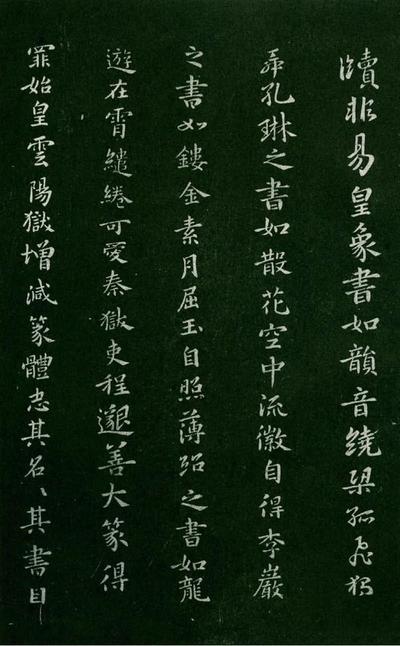 牘非易皇象書如韻音繞梁孤飛獨
舞孔琳之書如散花空中流徽自得李巖
之書如鏤金素月屈玉自照薄紹之書如龍
遊在霄繾綣可愛秦獄吏程邈善大篆得
罪始皇雲陽獄增減篆體忠其名〻其書曰